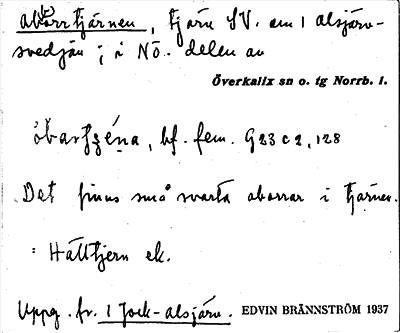 Abborrtjärnen, tjärn SV. om 1 alsjärv-
svedjan i; i Nö. delen av
Överkalix sn o. tg Norrb. l.
bf. fem. G 23 c 2, 128
Det finns små svarta aborrar i tjärnen.
= Hålltjern ek.
Uppg. fr. 1 Jock-alsjärv. EDVIN BRÄNNSTRÖM 1937